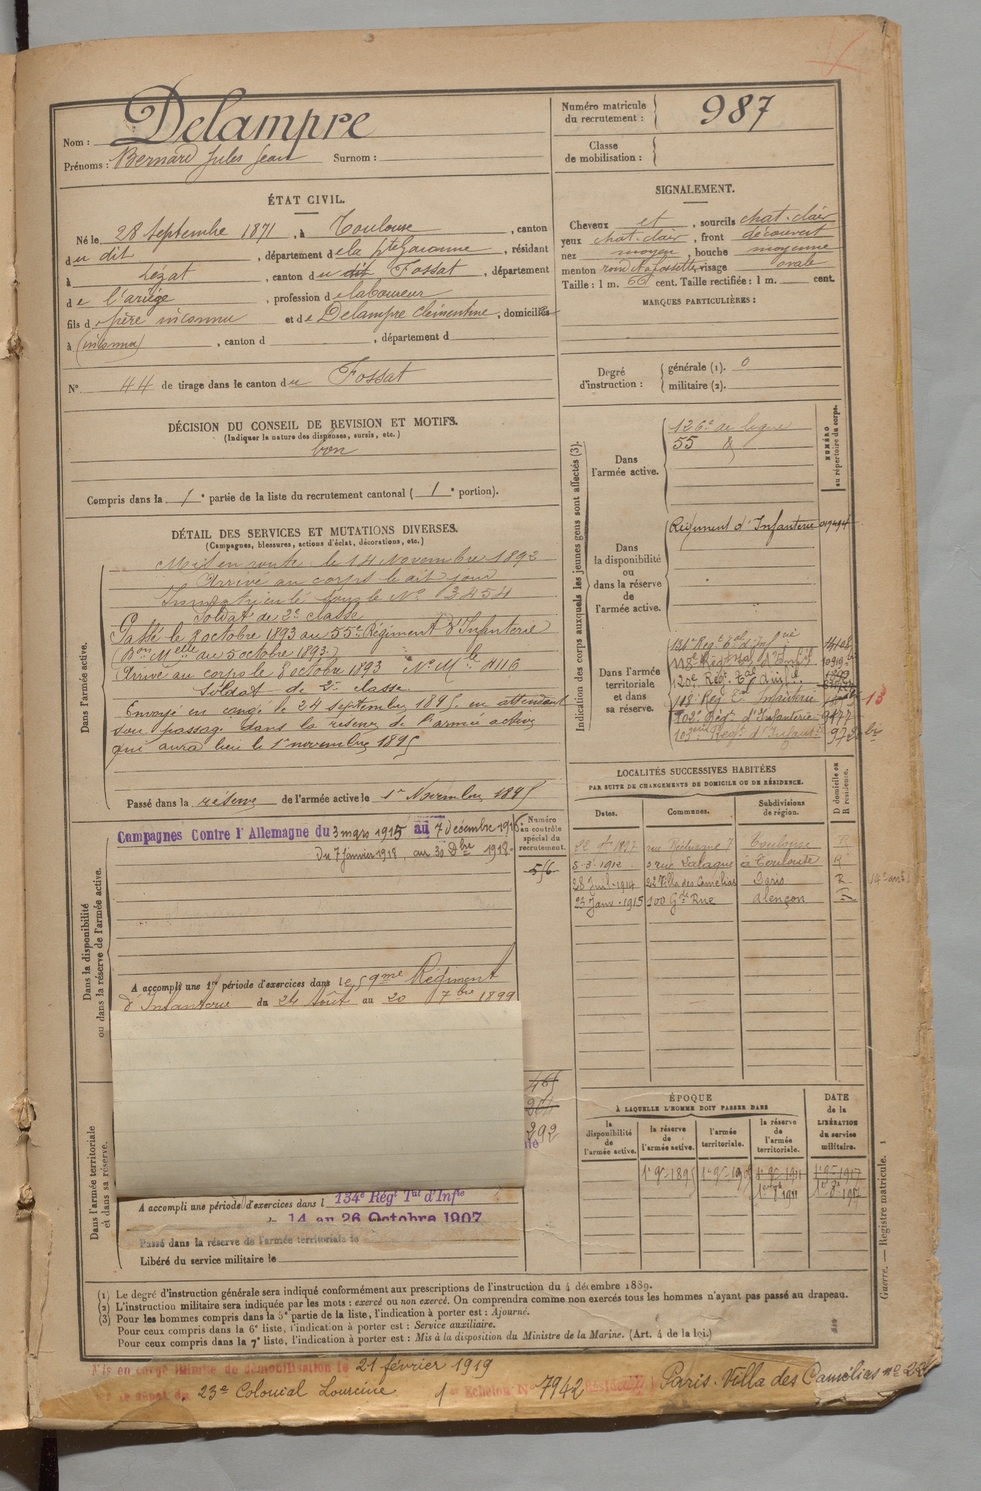 Nom : Delampre
Prénoms : Bernard Jules Jean Surnom :
Numéro matricule du recrutement : 987
Classe de mobilisation :
ÉTAT CIVIL.
Né le 28 Septembre 1871, à Toulouse, canton
du dit, département de la hte Garonne, résidant
à Lézat, canton du dit Fossat, département
de l'ariège, profession de laboureur
fils de père inconnu et de Delampre Clémentine, domiciliés
à (inconnu), canton d , département d
N° 44 de tirage dans le canton du Fossat
DÉCISION DU CONSEIL DE REVISION ET MOTIFS.
(Indiquer la nature des dispenses, sursis, etc.)
bon
Compris dans la 1e partie de la liste du recrutement cantonal (1e portion).
DÉTAIL DES SERVICES ET MUTATIONS DIVERSES.
(Campagnes, blessures, actions d'éclat, décorations, etc.)
Dans l'armée active.
Mis en route le 14 Novembre 1892
Arrivé au corps le dit jour
Immatriculé sous le N° 3454
Soldat de 2e classe
Passé le 8 octobre 1893 au 55e Régiment d'Infanterie
(Don Melle au 5 octobre 1893.)
Arrivé au corps le 8 octobre 1893 N° Mle 4116
Soldat de 2e classe
Envoyé en congé le 24 septembre 1895, en attendant
son passage dans la réserve de l'armée active
qui aura lieu le 1er novembre 1895
Passé dans la réserve de l'armée active le 1er Novembre 1895
Dans la disponibilité ou dans la réserve de l'armée active.
Campagnes Contre l'Allemagne du 3 mars 1915 au 7 décembre 1916
Du 7 janvier 1918, au 30 Xbre 1918.
Numéro au contrôle spécial du recrutement.
556
A accompli une 1re période d'exercices dans le 59me Régiment
d'Infanterie du 24 août au 20 7bre 1899
292
Dans l'armée territoriale et dans sa réserve.
A accompli une période d'exercices dans l 134e Régt Tal d'Infie
14 au 26 Octobre 1907
Passé dans la réserve de l'armée territoriale le
Libéré du service militaire le
SIGNALEMENT.
Cheveux et, sourcils chat. clair
yeux chat. clair, front découvert
nez moyen, bouche moyenne
menton rond et à fossette, visage ovale
Taille : 1 m. 66 cent. Taille rectifiée : 1 m. cent.
MARQUES PARTICULIÈRES :
Degré d'instruction : générale (1). 0
militaire (2).
Indication des corps auxquels les jeunes gens sont affectés (3).
NUMÉRO au répertoire du corps.
Dans l'armée active.
126e de ligne
55 d
Dans la disponibilité ou dans la réserve de l'armée active.
Régiment d'Infanterie
Dans l'armée territoriale et dans sa réserve.
134e Régt Tal d'Infie
118e Régt Tal d'Inf
120e Régt Tal d'Inf
118 Régt Tal Infanterie 13
102e Régt d'Infanterie 9477
103eme Regt d'Infant
LOCALITÉS SUCCESSIVES HABITÉES
PAR SUITE DE CHANGEMENTS DE DOMICILE OU DE RÉSIDENCE.
Dates. Communes. Subdivisions de région. D domicile ou R résidence.
Toulouse R
5-3-1912 3 rue Lalague à Toulouse R
28 Juil. 1914 22 Villa des Camélias Paris R (14e arrt)
23 Janv. 1915 100 Gde Rue Alençon R
ÉPOQUE
À LAQUELLE L'HOMME DOIT PASSER DANS
la disponibilité de l'armée active.
la réserve de l'armée active.
l'armée territoriale.
la réserve de l'armée territoriale.
DATE de la LIBÉRATION du service militaire.
1er 9bre 1895
Guerre. — Registre matricule. 1
(1) Le degré d'instruction générale sera indiqué conformément aux prescriptions de l'instruction du 4 décembre 1889.
(2) L'instruction militaire sera indiquée par les mots : exercé ou non exercé. On comprendra comme non exercés tous les hommes n'ayant pas passé au drapeau.
(3) Pour les hommes compris dans la 5e partie de la liste, l'indication à porter est : Ajourné.
Pour ceux compris dans la 6e liste, l'indication à porter est : Service auxiliaire.
Pour ceux compris dans la 7e liste, l'indication à porter est : Mis à la disposition du Ministre de la Marine. (Art. 4 de la loi.)
Mis en congé illimité de démobilisation le 21 février 1919
23e Colonial Lourcine 1er Echelon N° 7942 Paris. Villa des Camélias n° 22